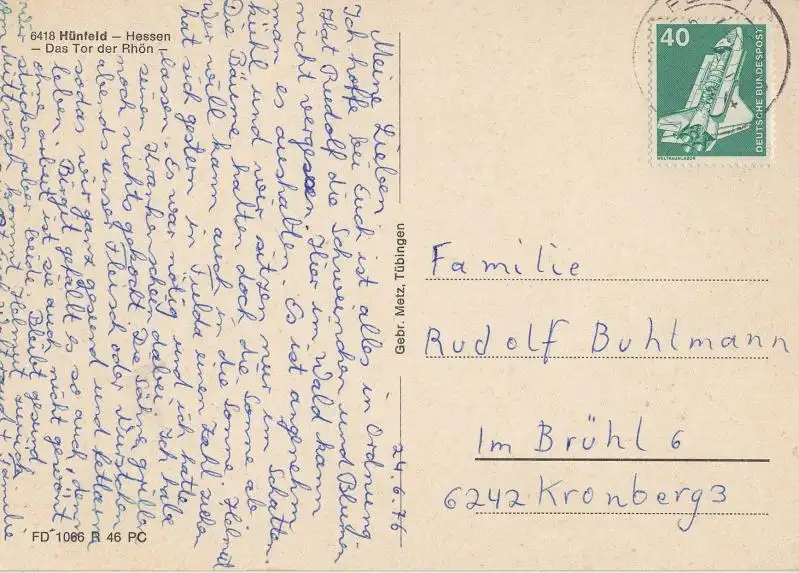 6418 Hünfeld – Hessen
– Das Tor der Rhön –
Meine Lieben
Ich hoffe bei Euch ist alles in Ordnung.
Hat Rudolf die Schweinchen und Blumen
nicht vergessen. Hier im Wald kann
man es aushalten. Es ist angenehm
kühl und wir sitzen nur im Schatten.
Die Bäume halten doch die Sonne ab
Wer will kann auch in die Sonne. Helmut
hat sich gestern in Fulda einen Zahl ziehen
lassen. Es war nötig und ich hatte
sein Krankenschein dabei. Ich habe
noch nichts gekocht. Die Söhne grillen
abends unser Fleisch oder Würstchen
sodas wir ganz gesund und
leben. Birgit gefällt es so auch, denn
ohne arbeit ist sie auch nicht gewöhnt
Wir stricken aber beide. Bleibt gesund
Am Mittwoch kommt Helmut zurück
Familie
24.6.76
Gebr. Metz, Tübingen
FD 1066 R 46 PC
40
DEUTSCHE BUNDESPOST
WELTRAUMLABOR
Familie
Rudolf Buhlmann
Im Brühl 6
6242 Kronberg 3